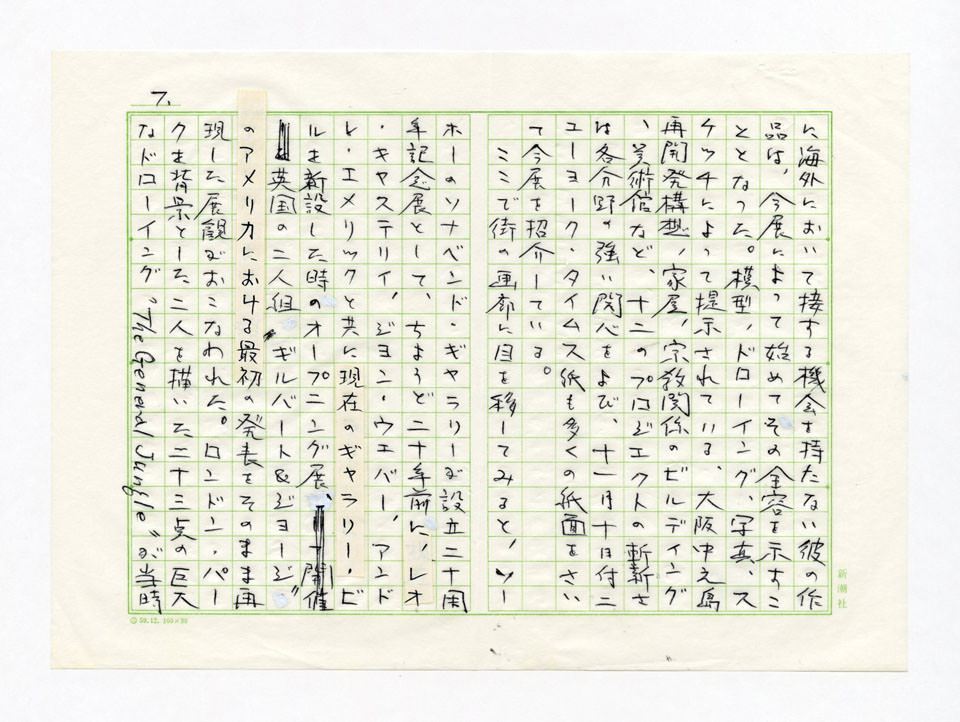 7.
に海外において接する機会を持たない彼の作
品は、今展によって始めてその全容を示すこ
ととなった。模型、ドローイング、写真、ス
ケッチによって提示されている、大阪中之島
再開発構想、家屋、宗教関係のビルディング
、美術館など、十二のプロジェクトの斬新さ
は各分野の強い関心をよび、十一月十日付ニ
ューヨーク・タイムス紙も多くの紙面をさい
て今展を招介している。
ここで街の画廊に目を移してみると、ソー
ホーのソナベンド・ギャラリーが設立二十周
年記念展として、ちょうど二十年前に、レオ
・キャステリイ、ジョン・ウエバー、アンド
レ・エメリックと共に現在のギャラリー・ビ
ルを新設した時のオープニング展、開催
英国の二人組〝ギルバート&ジョージ〟
のアメリカにおける最初の発表をそのまま再
現した展観がおこなわれた。ロンドン・パー
クを背景とした二人を描いた二十三点の巨大
なドローイング〝The General Jungle〟が当時
新潮社
59.12. 100×20